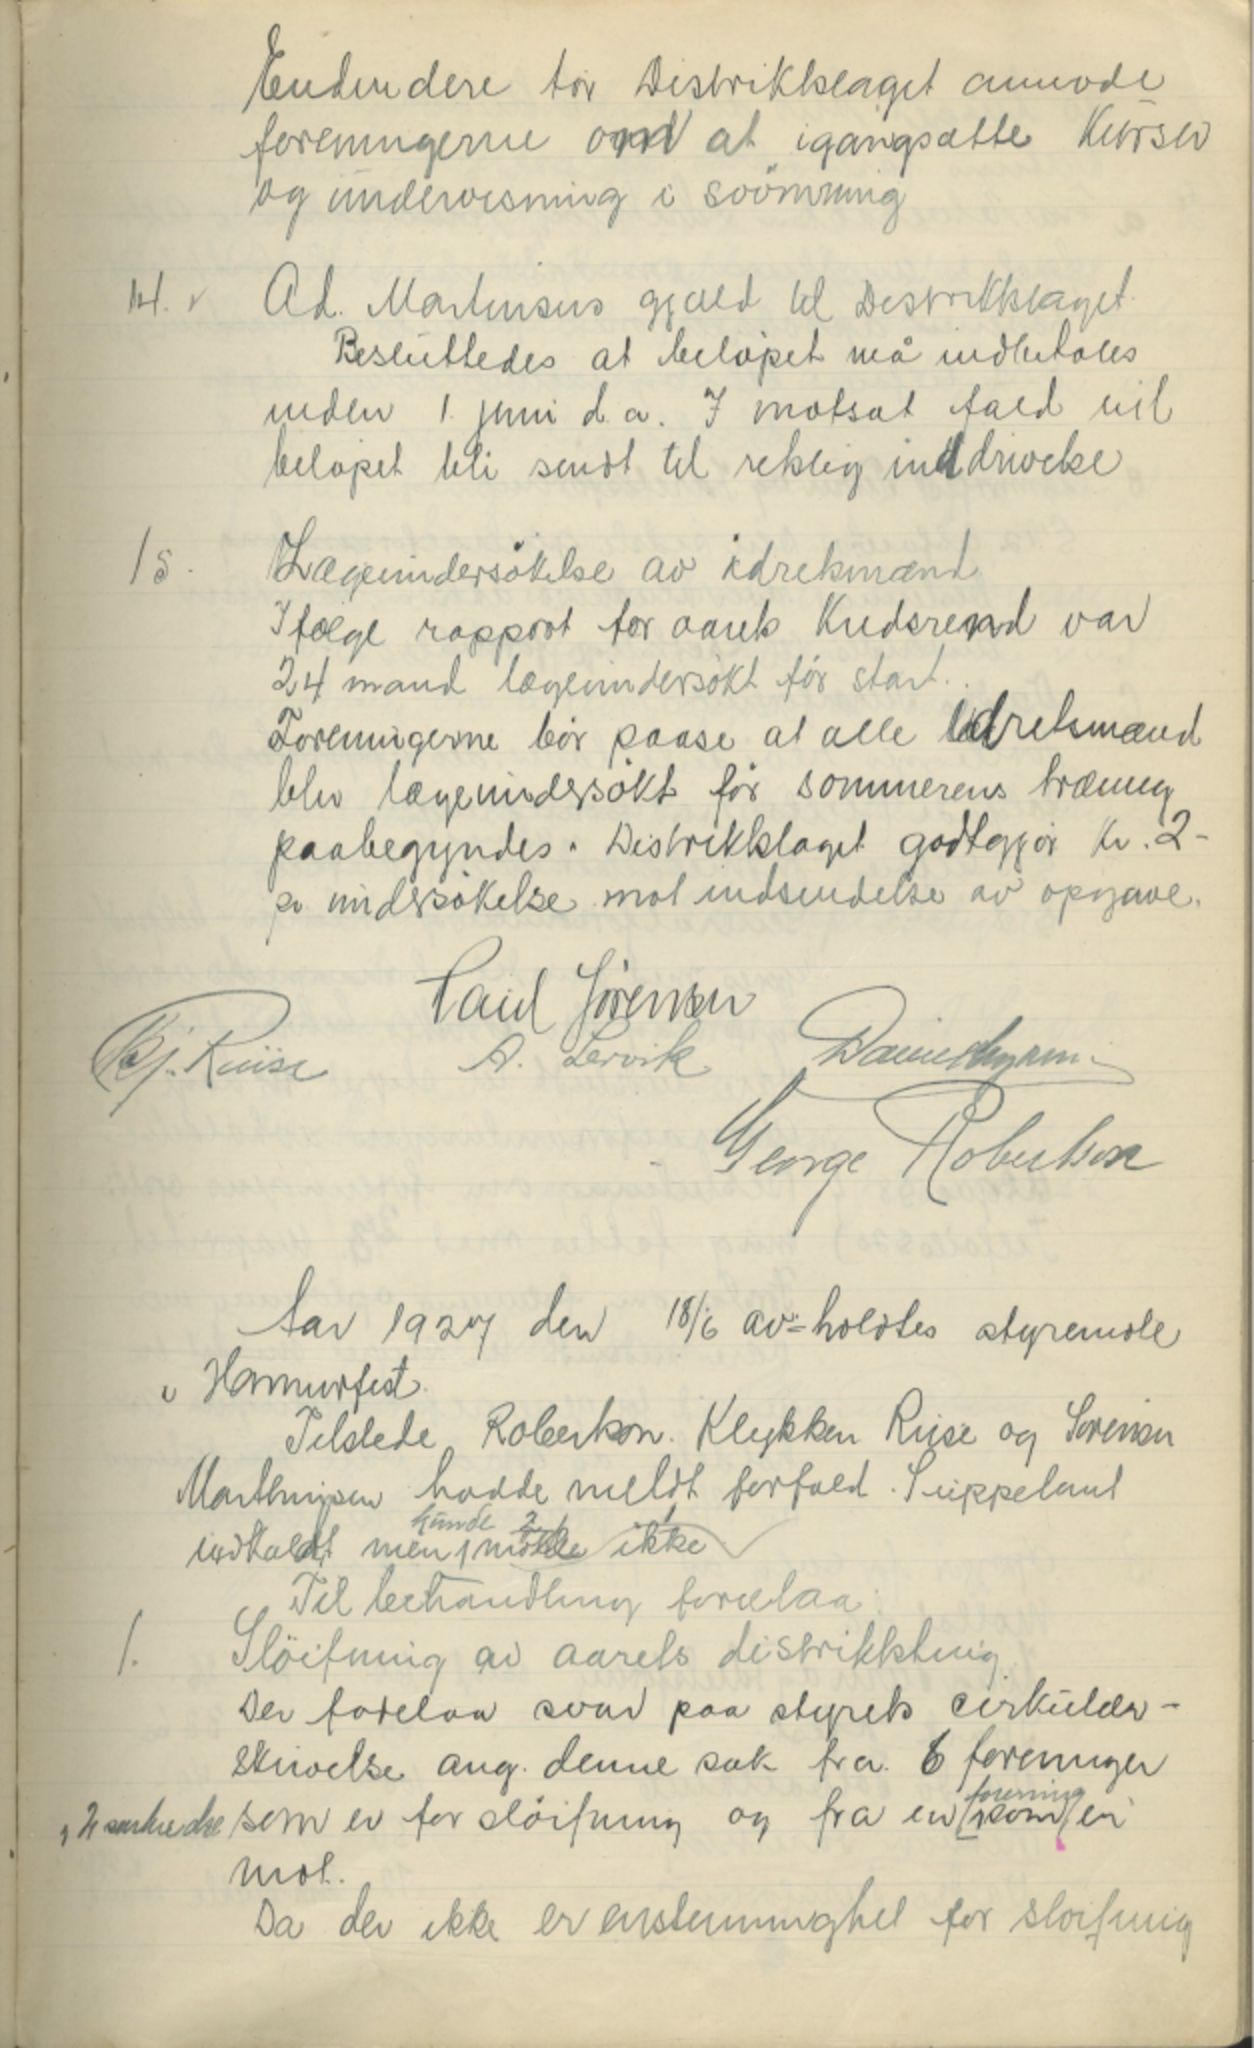 Endvidere tør Distriktslaget anmode
foreningerne om at igangsætte Kurser
og undervisning i svömning
14. Ad. Martinsens gjæld til Distriktslaget.
Besluttedes at beløpet må indbetales
inden 1. juni d.a. I motsat fald vil
beløpet bli sendt til retslig inddrivelse
15. Lægeundersökelse av idretsmænd
Ifølge rapport for aarets Kredsrend var
24 mand lægeundersökt før start.
Foreningerne bør paase at alle idretsmænd
blir lægeundersøkt før sommerens træning
paabegyndes. Distriktslaget godtgjør kr. 2-
pr undersøkelse mot indsendelse av opgave.
Paul Sörensen
Bj. Riise A. Lervik
George Robertson
Aar 1927 den 18/6 av=holdtes styremøte
i Hammerfest.
Tilstede Robertson. Klykken Riise og Sörensen
Marthinsen hadde meldt forfald. Suppelant
indkaldt men kunde ikke møte
Til behandling forelaa:
1. Slöifning av aarets distriktsting
Der forelaa svar paa styrets cirkulær-
skrivelse ang. denne sak fra 6 foreninger
som er for slöifning og fra en forening som er
mot.
Da der ikke er enstemmighet for sløifning